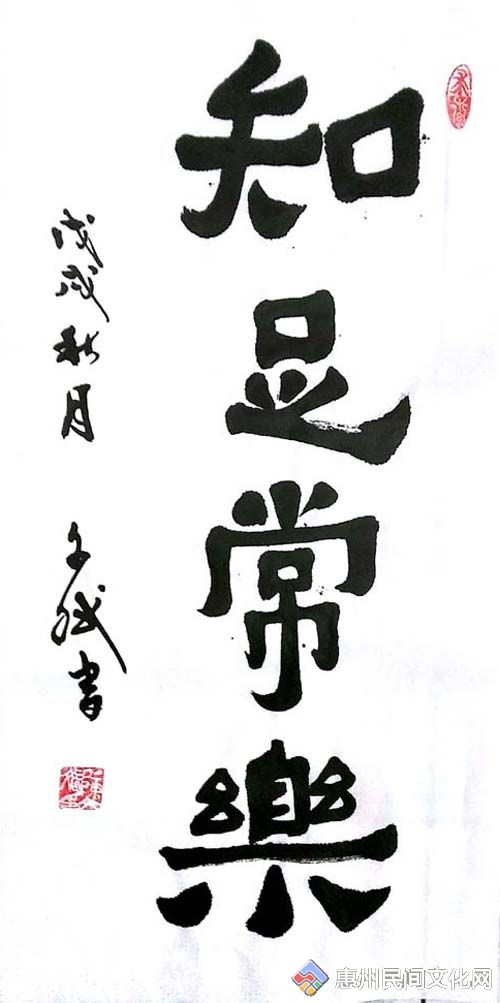 知足常樂
戊戌秋月 文斌書
惠州民间文化网